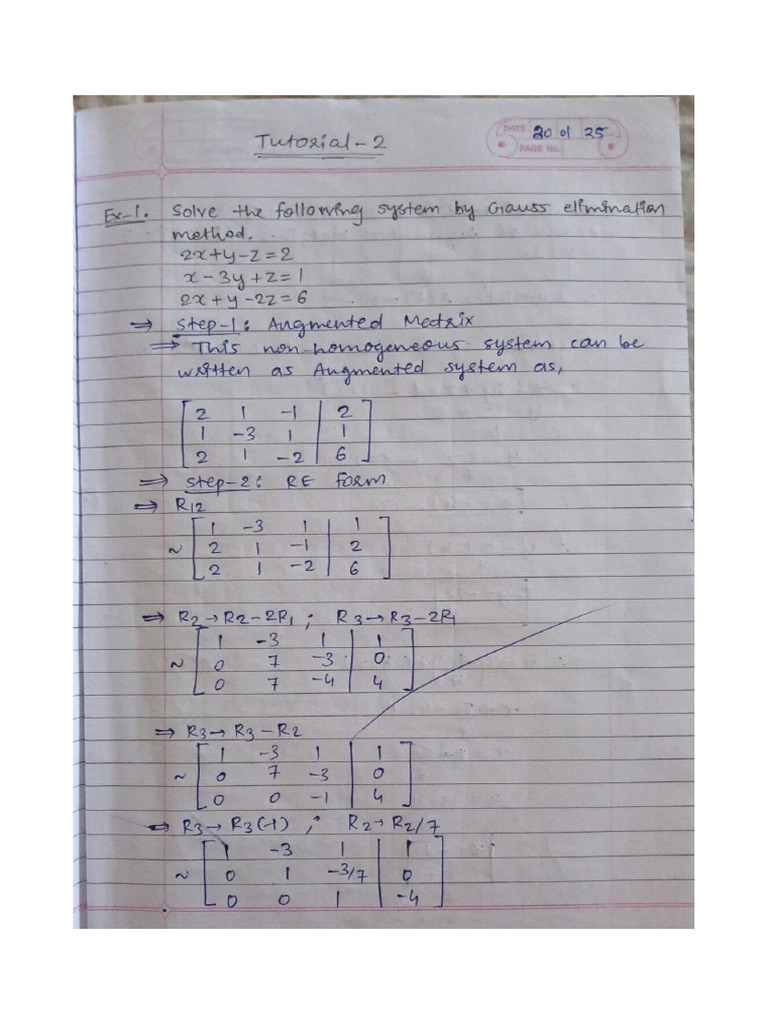 Tutorial-2
DATE 20 01 25
PAGE No.
Ex-1. Solve the following system by Gauss elimination
method.
2x+y-z=2
x-3y+z=1
2x+y-2z=6
⇒ Step-1: Augmented Medrix
⇒ This non-homogeneous system can be
written as Augmented system as,
[ 2 1 -1 | 2 ]
[ 1 -3 1 | 1 ]
[ 2 1 -2 | 6 ]
⇒ Step-2: RE form
⇒ R12
[ 1 -3 1 | 1 ]
~ [ 2 1 -1 | 2 ]
[ 2 1 -2 | 6 ]
⇒ R2→R2-2R1 ; R3→R3-2R1
[ 1 -3 1 | 1 ]
~ [ 0 7 -3 | 0 ]
[ 0 7 -4 | 4 ]
⇒ R3→R3-R2
[ 1 -3 1 | 1 ]
~ [ 0 7 -3 | 0 ]
[ 0 0 -1 | 4 ]
⇒ R3→R3(-1) ; R2→R2/7
[ 1 -3 1 | 1 ]
~ [ 0 1 -3/7 | 0 ]
[ 0 0 1 | -4 ]